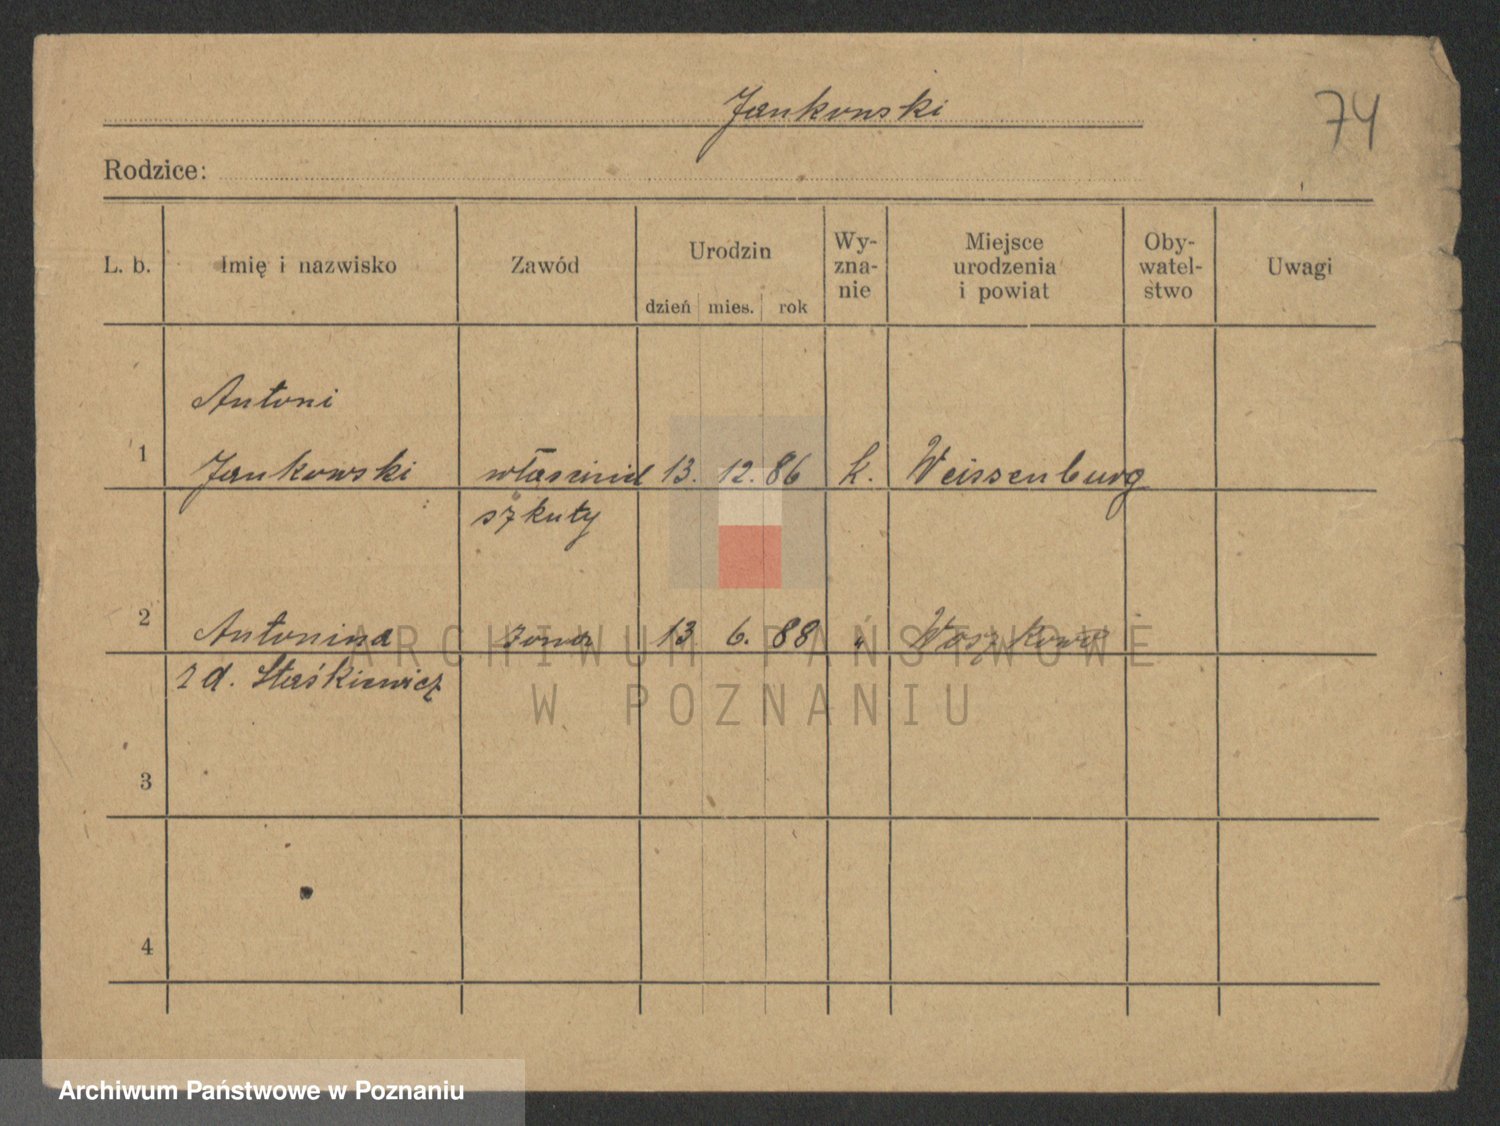 Jankowski
74
Rodzice:
L. b.
Imię i nazwisko
Zawód
Urodzin
dzień mies. rok
Wy-
zna-
nie
Miejsce
urodzenia
i powiat
Oby-
watel-
stwo
Uwagi
Antoni
1 Jankowski właściciel 13. 12. 86 k. Weissenburg
szkuty
2 Antonina żona 13 6. 88 " Woszkowo
z d. Staśkiewicz
3
4
ARCHIWUM PAŃSTWOWE
W POZNANIU
Archiwum Państwowe w Poznaniu